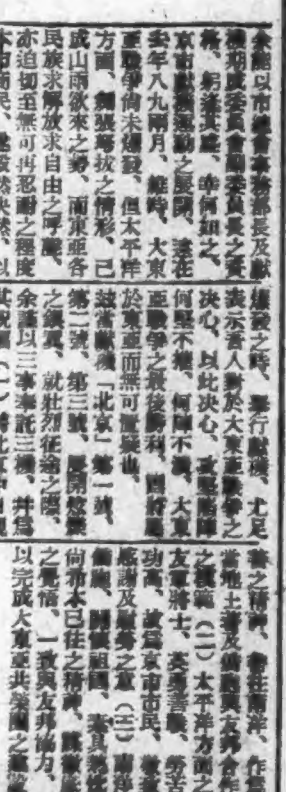 余能以市總會事務部長及獻
機期成委員會副委員長之資
格、躬逢其盛、幸何如之、
京市獻機運動之展開、遠在
去年八九兩月、維時、大東
亞戰爭尚未爆發、但太平洋
方面、劍張弩拔之情形、已
成山雨欲來之勢、而東亞各
民族求解放求自由之呼聲、
亦迫切至無可再忍耐之程度
本市商民、以
爆發之時、舉行獻機、尤足
表示吾人對於大東亞戰爭之
決心、以此決心、攻堅陷陣
何堅不摧、何陣不潰、大東
亞戰爭之最後勝利、固將屬
於東亞而無可懷疑也、
茲當獻機「北京」第一號、
第二號、第三號、
之銀翼、就壯烈征途之際、
余謹以三事奉託三機、并為
其祝福(一)將北京市民
之精神、寄往南洋、作為
當地土著及僑胞與友邦合作
之模範(二)太平洋方面之
友軍將士、英勇善戰、勞苦
功高、故為京市市民、
感謝及慰勞之意(三)南洋
僑胞、關懷祖國、素具熱忱
尚希本已往之精神、
之覺悟、一致與友邦協力、
以完成大東亞共榮圈之